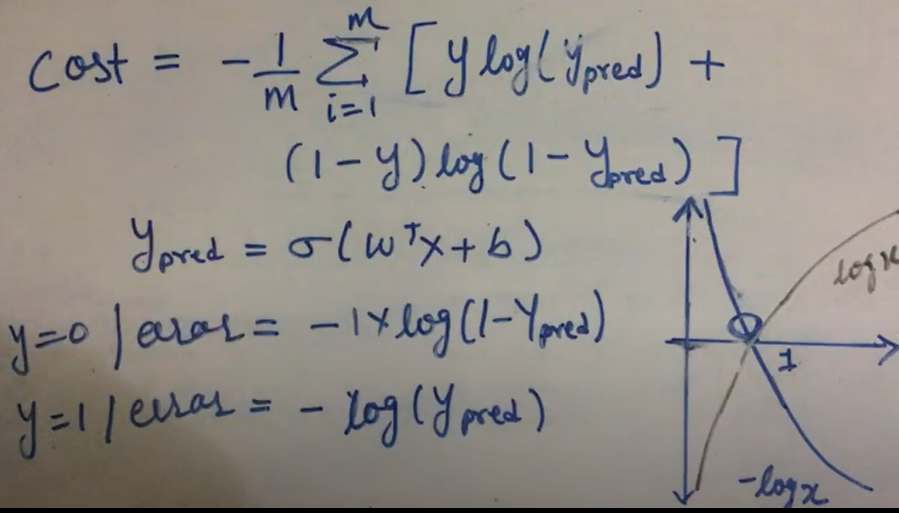 Cost = -1/m Σ_{i=1}^{m} [ y log(y_pred) +
(1 - y) log(1 - y_pred) ]
y_pred = σ(w^T x + b)
y=0 / error = -1 x log(1 - y_pred)
y=1 / error = - log(y_pred)
log x
1
-log x